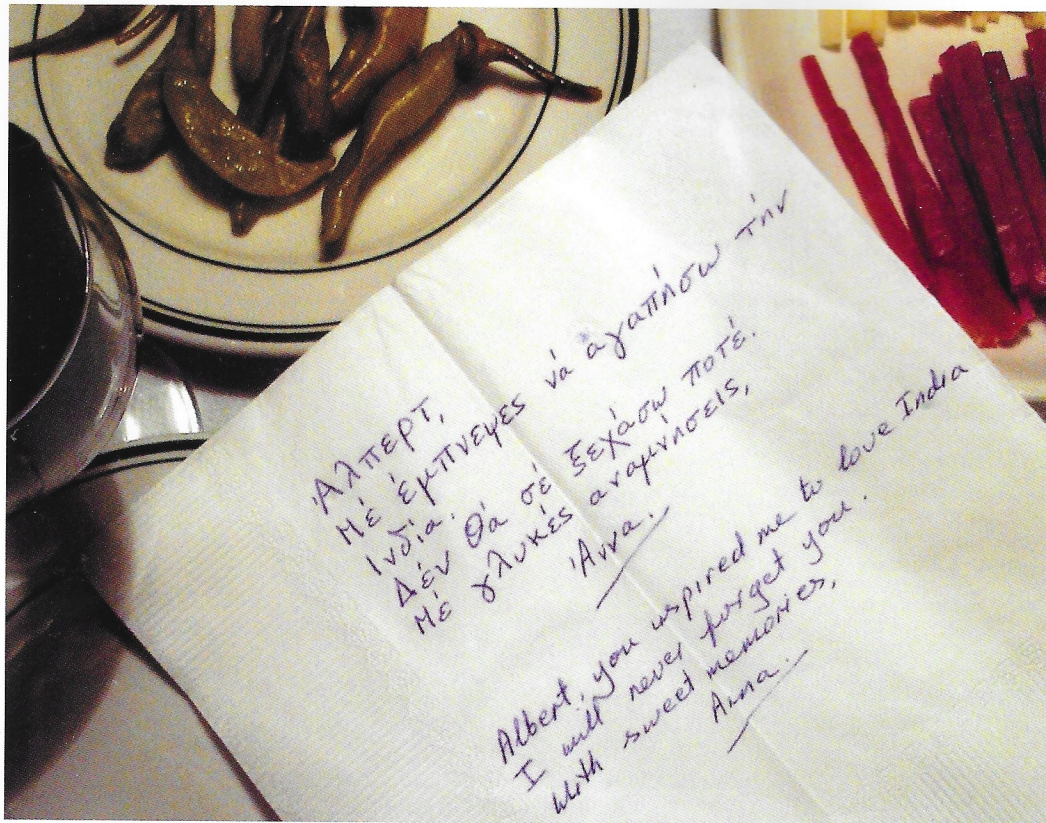 Άλπερτ,
Μέ έμπνεψες νά άγαπήσω τήν
Ινδία.
Δέν θά σέ ξεχάσω ποτέ.
Μέ γλυκές αναμνήσεις,
Άννα.
Albert, you inspired me to love India
I will never forget you.
With sweet memories,
Anna.